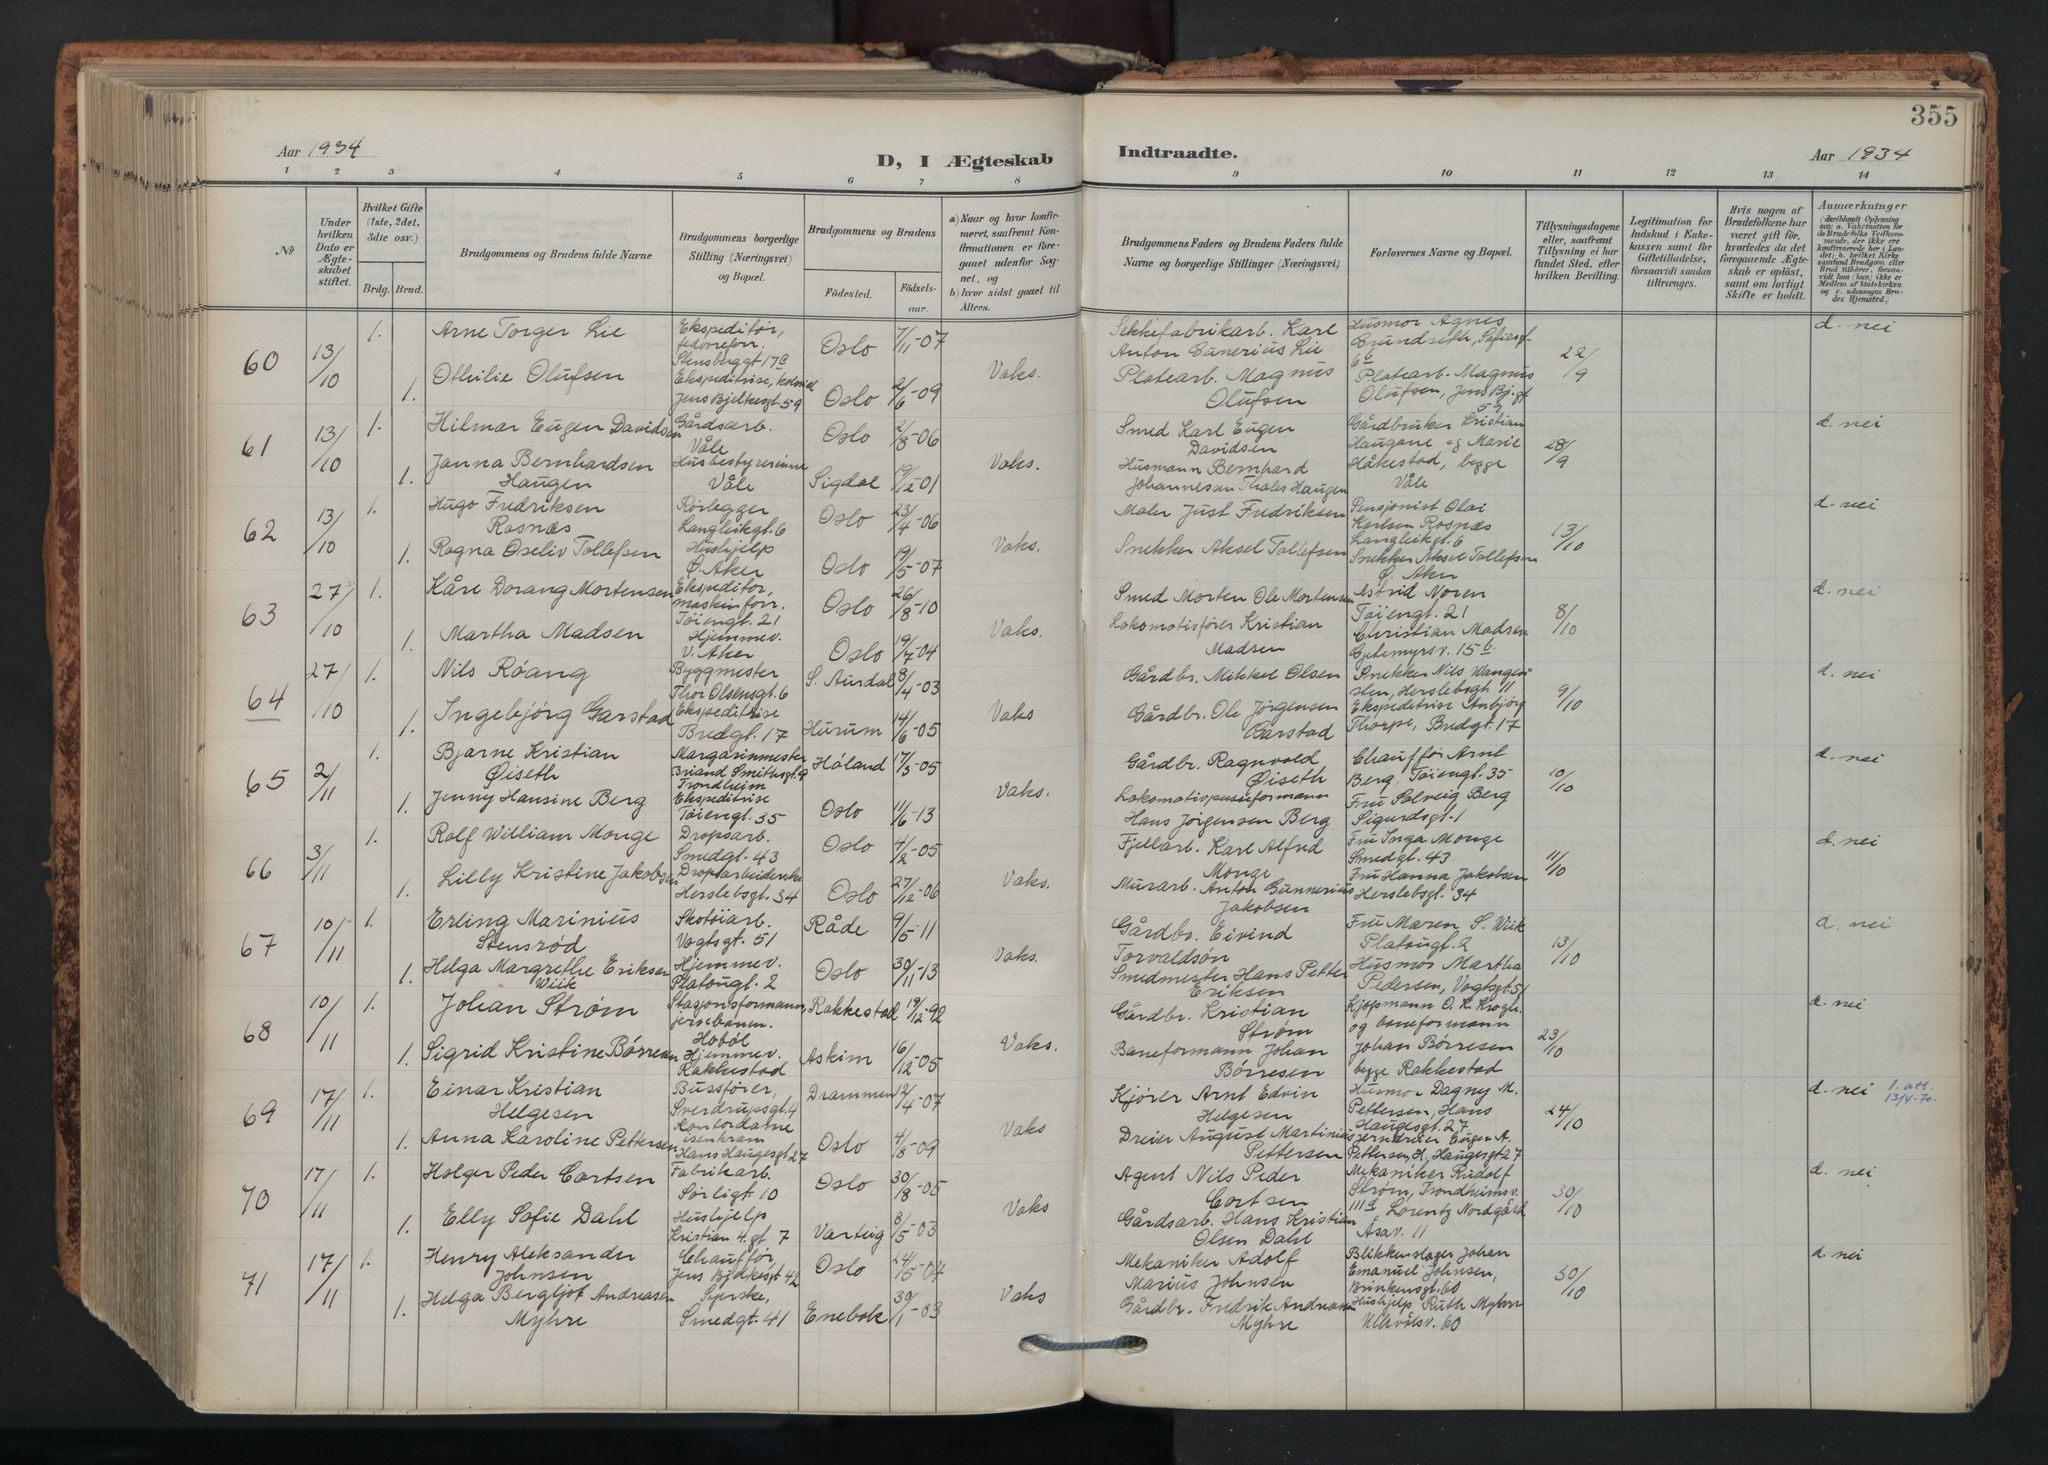 355
Aar 1934
D, I Ægteskab
Indtraadte.
Aar 1934
1 2 3 4 5 6 7 8 9 10 11 12 13 14
No
Under hvilken Dato er Ægteskabet stiftet.
Hvilket Gifte (1ste, 2det, 3die osv.)
Brdg. Brud.
Brudgommens og Brudens fulde Navne
Brudgommens borgerlige Stilling (Næringsvei) og Bopæl.
Brudgommens og Brudens
Fødested.
Fødselsaar.
a) Naar og hvor konfirmeret, saafremt Konfirmationen er foregaaet udenfor Sognet, og
b) hvor sidst gaaet til Alters.
Brudgommens Faders og Brudens Faders fulde Navne og borgerlige Stillinger (Næringsvei).
Forlovernes Navne og Bopæl.
Tillysningsdagene eller, saafremt Tillysning ei har fundet Sted, efter hvilken Bevilling.
Legitimation for Indskud i Enkekassen samt for Giftetilladelse, forsaavidt saadan tiltrænges.
Hvis nogen af Brudefolkene har været gift før, hvorledes da det foregaaende Ægteskab er opløst, samt om lovligt Skifte er holdt.
Anmærkninger
60 13/10 1. Arne Torger Lie
Ekspeditør,
Stensberggt 17
Oslo 7/11-07
1. Othilie Olufsen
Ekspeditrise, kolonial
Jens Bjelkesgt. 59
Oslo 2/6-09
Vaks.
Sekkefabrikarb. Karl
Anton Gunerius Lie
Platearb. Magnus
Olufsen
Husmor Agnes
Grundseth, Sofiesgt
6
Platearb. Magnus
Olufsen, Jens Bj.gt
59
22/9
d. nei
61 13/10 1. Hilmar Eugen Davidsen
Gårdsarb.
Våle
Oslo 2/8-06
1. Janna Bernhardsen
Haugen
Husbestyrerinne
Våle
Sigdal 19/12-01
Vaks.
Smed Karl Eugen
Davidsen
Husmann Bernhard
Johannessen Haugen
Gårdbruker Kristian
Haugane og Marie
Håkestad, begge
Våle
28/9
d. nei
62 13/10 1. Hugo Fredriksen
Rosnæs
Rørlegger
Langleikgt. 6
Oslo 23/4-06
1. Ragna Oseliv Tollefsen
Hushjelp
Ø. Aker
Oslo 19/5-07
Vaks.
Maler Just Fredriksen
Snekker Aksel Tollefsen
Pensjonist Olai
Karlsen Rosnæs
Langleikgt. 6
Snekker Aksel Tollefsen
Ø. Aker
13/10
d. nei
63 27/10 1. Kåre Dorang Mortensen
Ekspeditør,
maskinforr.
Tøiengt. 21
Oslo 26/8-10
1. Martha Madsen
Hjemmev.
V. Aker
Oslo 19/7-04
Vaks.
Smed Morten Ole Mortensen
Lokomotivfører Kristian
Madsen
Astrid Noren
Tøiengt. 21
Christian Madsen
Gjetemyrsv. 15 b.
8/10
d. nei
64 27/10 1. Nils Röang
Byggmester
Thor Olsensgt. 6
S. Aurdal 8/4-03
1. Ingebjörg Garstad
Ekspeditrise
Bredgt. 17
Hurum 14/6-05
Vaks
Gårdbr. Mikkel Olsen
Gårdbr. Ole Jørgensen
Garstad
Snekker Nils Wangensten, Herslebsgt 11
Ekspeditrise Anbjörg
Thorpe, Bredgt. 17
9/10
d. nei
65 2/11 1. Bjarne Kristian
Øiseth
Margarinmester
Smithsgt. 9
Trondheim
Høland 17/3-05
1. Jenny Hansine Berg
Ekspeditrise
Tøiengt. 35
Oslo 11/6-13
Vaks.
Gårdbr. Ragnvald
Øiseth
Lokomotivpusserformann
Hans Jørgensen Berg
Chauffør Arnt
Berg, Tøiengt. 35
Fru Solveig Berg
Sigurdsgt. 1
10/10
d. nei
66 3/11 1. Rolf William Monge
Dropsarb.
Smedgt. 43
Oslo 4/2-05
1. Lilly Kristine Jakobsen
Dropsarbeiderske
Herslebsgt. 34
Oslo 27/12-06
Vaks.
Fjellarb. Karl Alfred
Monge
Murarb. Anton Gunnerius
Jakobsen
Fru Inga Monge
Smedgt. 43
Fru Hanna Jakobsen
Herslebsgt. 34
11/10
d. nei
67 10/11 1. Erling Marinius
Stensrød
Skotøiarb.
Vogtsgt. 51
Råde 9/5-11
1. Helga Margrethe Eriksen
Wiik
Hjemmev.
Platougt. 2
Oslo 30/11-13
Vaks.
Gårdbr. Eivind
Torvaldsøn
Smedmester Hans Petter
Eriksen
Fru Maren S. Wiik
Platougt. 2
Husmor Martha
Pedersen, Vogtsgt. 51
13/10
d. nei
68 10/11 1. Johan Strøm
Stasjonsformann,
jernbanen.
Hobøl
Rakkestad 19/12-92
1. Sigrid Kristine Børresen
Hjemmev.
Rakkestad
Askim 16/12-05
Vaks.
Gårdbr. Kristian
Strøm
Baneformann Johan
Børresen
Kjøpmann O. K. Krogh
og baneformann
Johan Børresen
begge Rakkestad
23/10
d. nei
69 17/11 1. Einar Kristian
Helgesen
Bussfører,
Sverdrupsgt. 4
Drammen 12/4-07
1. Anna Karoline Pettersen
Kontordame
isenkram
Hans Haugesgt 27
Oslo 4/8-09
Vaks
Kjører Arnt Edvin
Helgesen
Dreier August Martinius
Pettersen
Husmor Dagny M.
Pettersen, Hans
Haugesgt. 27
jerndreier Eugen A.
Pettersen, H. Haugesgt 27
24/10
d. nei 1. att. 13/4-70.
70 17/11 1. Holger Peder Cortsen
Fabrikarb.
Sørligt 10
Oslo 30/8-05
1. Elly Sofie Dahl
Hushjelp
Kristian 4. gt 7
Varteig 8/5-03
Vaks
Agent Nils Peder
Cortsen
Gårdsarb. Hans Kristian
Olsen Dahl
Mekaniker Rudolf
Strøm, Trondheimsv.
111 a Lorentz Nordgåsk
Åsav. 11
30/10
d. nei
71 17/11 1. Henry Aleksander
Johnsen
Chauffør
Jens Bjelkesgt 42
Oslo 24/5-04
1. Helga Bergljot Andreasen
Myhre
Syerske,
Smedgt. 41
Enebak 30/1-03
Vaks
Mekaniker Adolf
Marius Johnsen
Gårdbr. Fredrik Andreasen
Myhre
Blikkenslager Johan
Emanuel Johnsen,
Brinkensgt. 60
Hushjelp Ruth Myhre
Ullevålsv. 60
30/10
d. nei